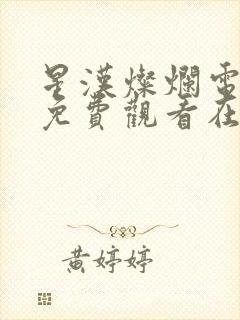 星漢燦爛電
免費觀看在
黃婷婷